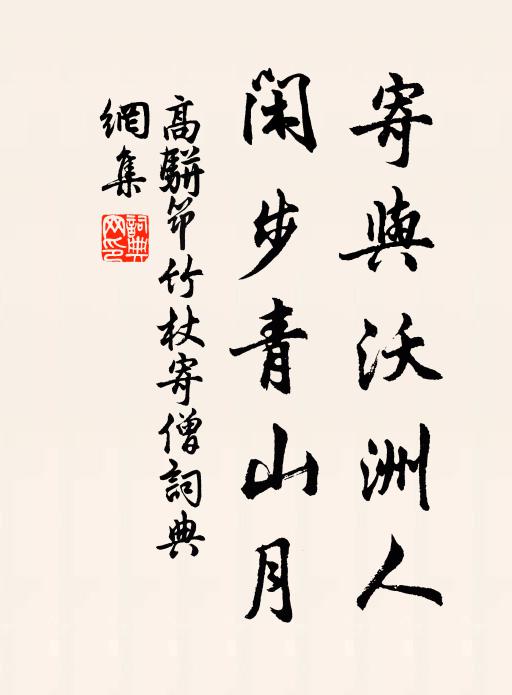 寄與沃洲人
閑步青山月
高駢筇竹杖寄僧詞典
網集
詞典
网印